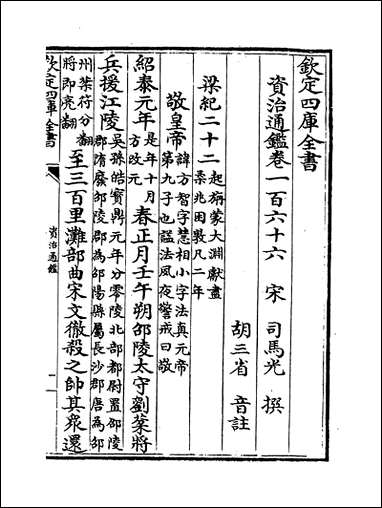 欽定四庫全書
資治通鑑卷一百六十六 宋 司馬光 撰
胡三省 音註
梁紀二十二 起旃蒙大淵獻盡
柔兆困敦凡二年
敬皇帝 諱方智字慧相小字法真元帝
第九子也諡法夙夜警戒曰敬
紹泰元年 是年十月
方改元 春正月壬午朔邵陵太守劉棻將
兵援江陵 吳孫皓寶鼎元年分零陵北部都尉置邵陵
郡隋廢邵陵郡為邵陽縣屬長沙郡唐為邵
州棻符分翻
將即亮翻 至三百里灘部曲宋文徹殺之帥其衆還
欽定四庫全書
資治通鑑
一